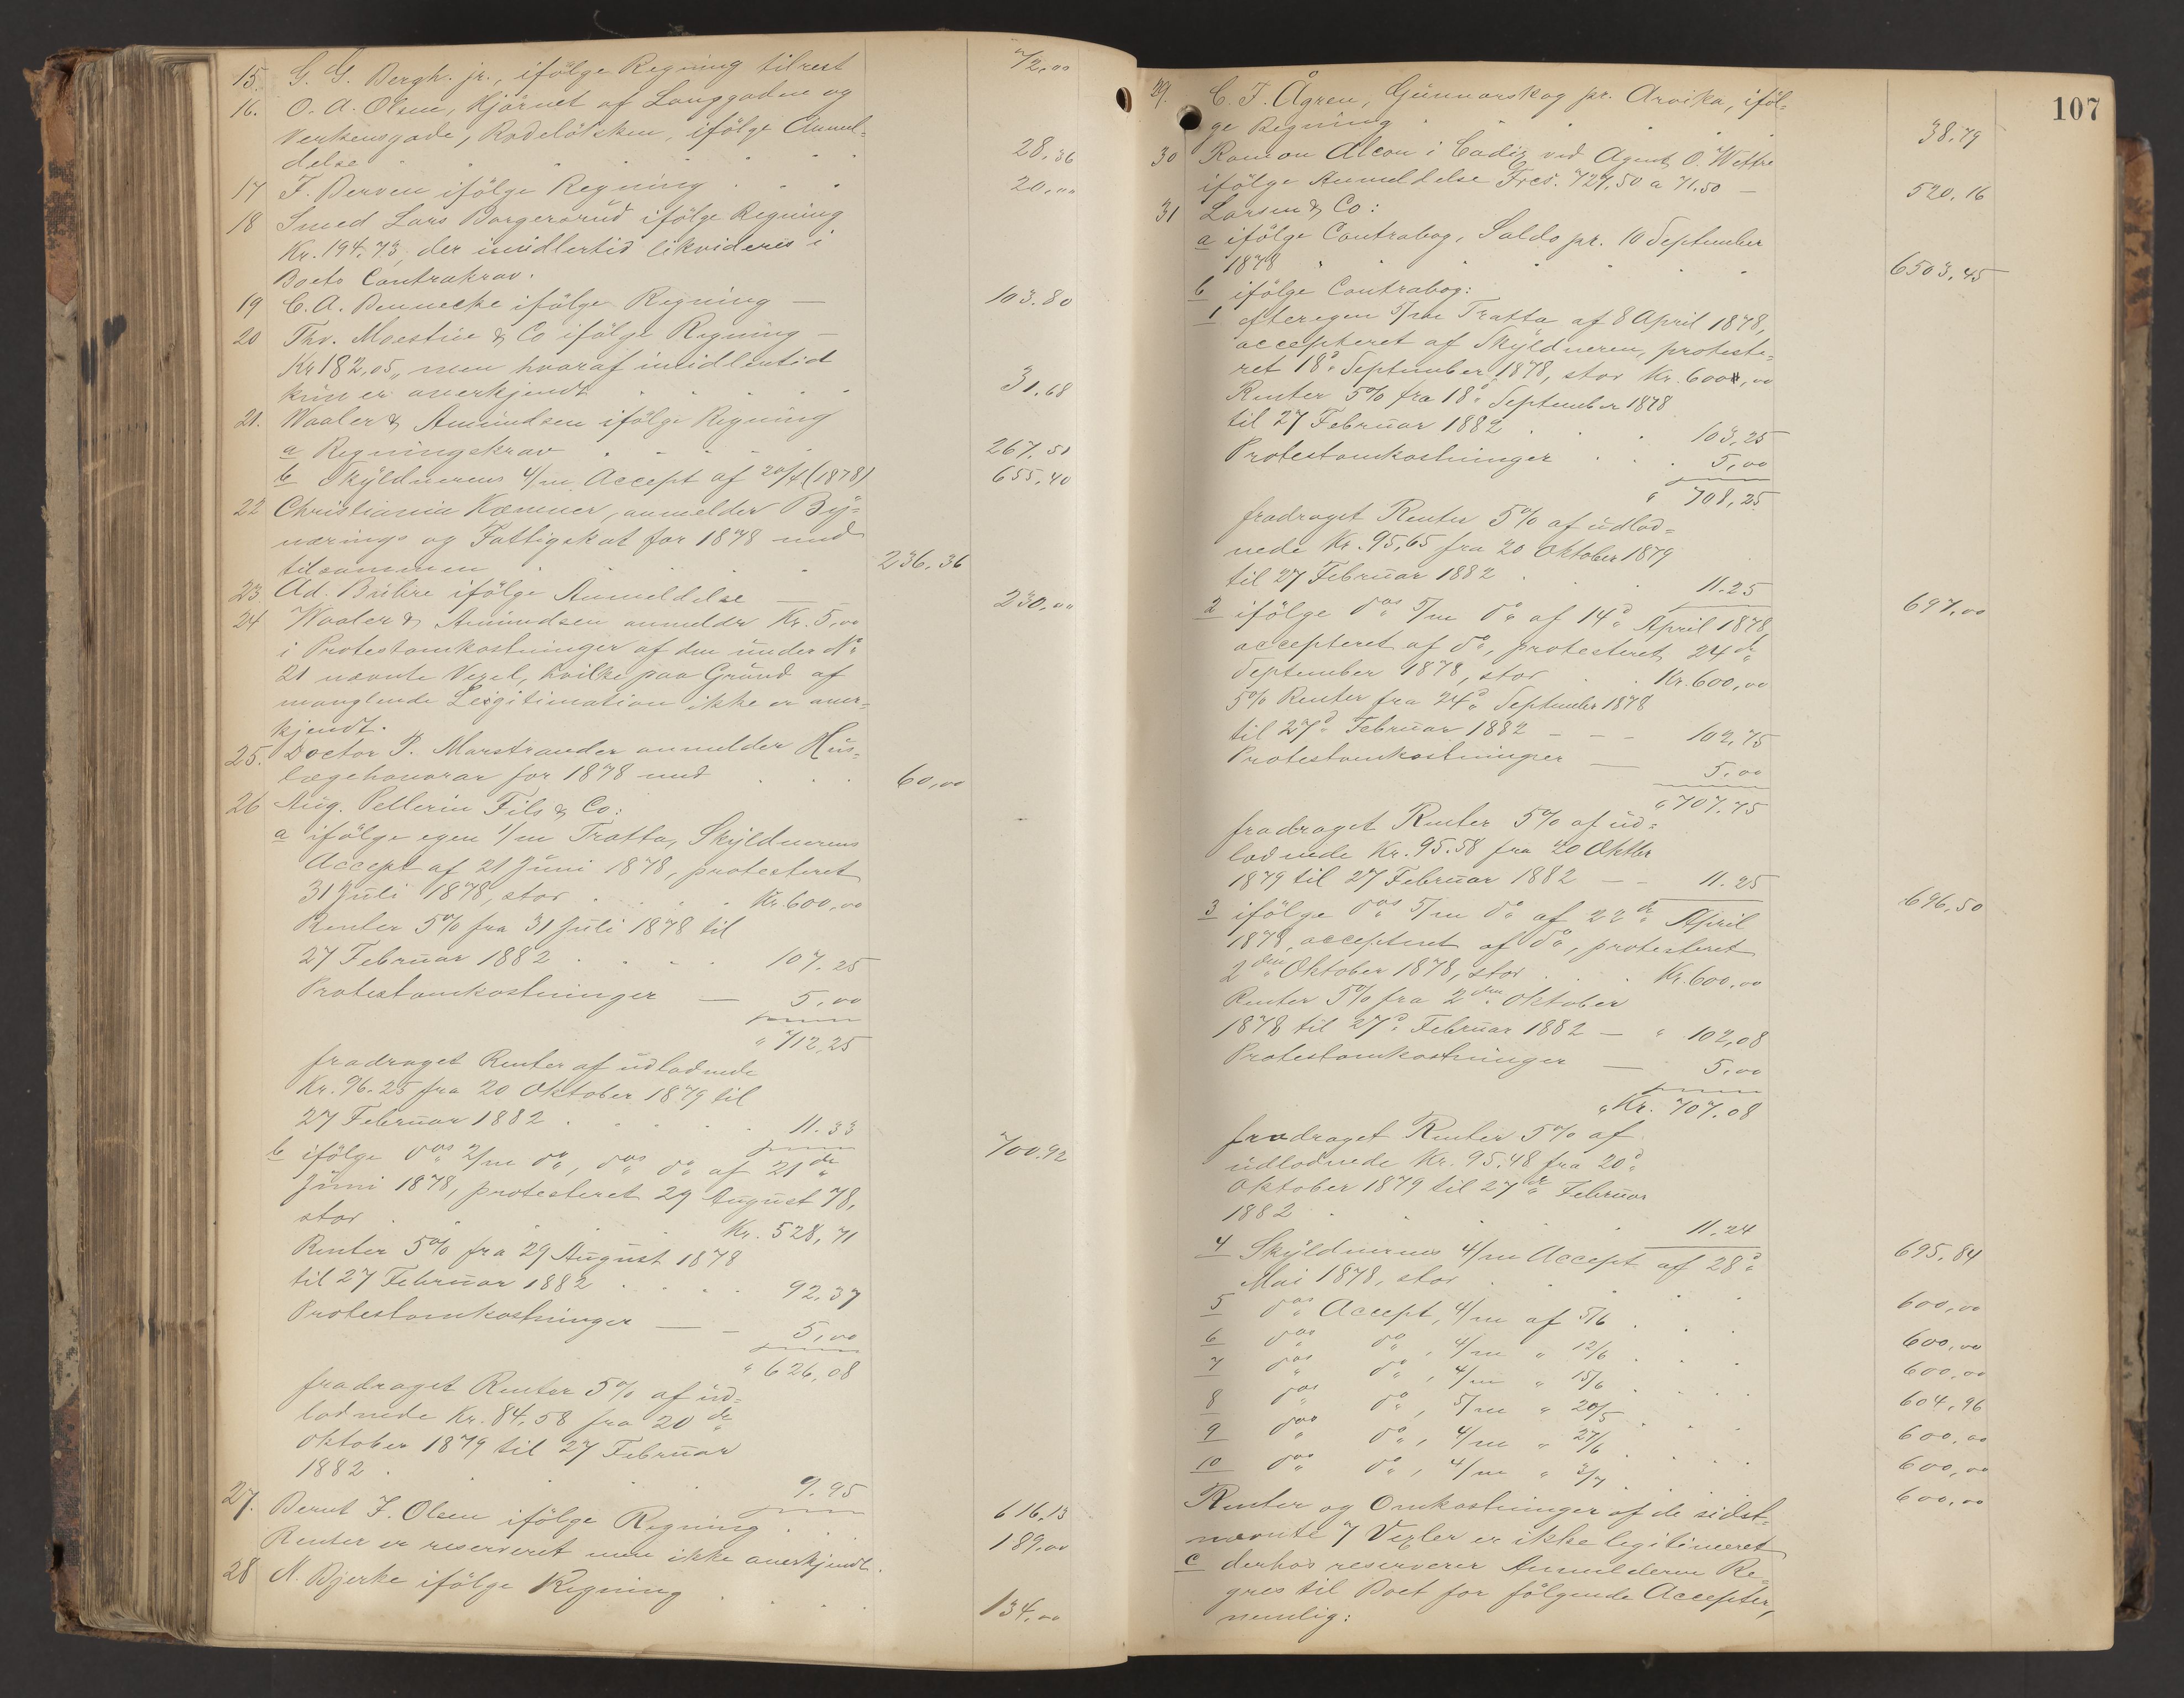 15. G. G. Bergh. jr., ifølge Regning tilrest 72,00
16. O. A. Olsen, Hjørnet af Langgaden og
Verkensgade, Rodeløkken, ifølge Anmel-
delse 28,36
17 F. Berven ifølge Regning 20,00
18 Smed Lars Borgersrud ifølge Regning
Kr. 194.73, der imidlertid likvideres i
Boets Contrakrav.
19 C. A. Dennecke ifølge Regning — 103.80
20 Thv. Moestue & Co ifølge Regning —
Kr 182,05, men hvoraf imidlertid
kun er anerkjendt 31.68
21. Waaler & Amundsen ifølge Regning
a Regningskrav 267.51
b Skyldnerens 4/m Accept af 20/4 (1878) 655.40
22 Christiania Kæmner, anmelder By-
nærings og Fattigskat for 1878 med
tilsammen 236.36
23. Ad. Bülire ifølge Anmeldelse — 230,00
24 Waaler & Amundsen anmelder Kr. 5,00
i Protestomkostninger af den under No
21 nævnte Vexel, hvilke paa Grund af
manglende Legitimation ikke er aner-
kjendt.
25. Doctor P. Marstrander anmelder Hus-
lægehonorar for 1878 med 60,00
26 Aug. Pellerin Fils & Co:
a ifølge egen 1/m Tratta, Skyldnerens
Accept af 21 Juni 1878, protesteret
31 Juli 1878, stor Kr. 600,00
Renter 5% fra 31 Juli 1878 til
27 Februar 1882 107.25
Protestomkostninger — 5,00
" 712,25
fradraget Renter af udlodnede
Kr. 96.25 fra 20 Oktober 1879 til
27 Februar 1882 11.33
700.92
b ifølge dos 2/m do, dos do af 21de
Juni 1878, protesteret 29 August 78,
stor Kr. 528,71
Renter 5% fra 29 August 1878
til 27 Februar 1882 92.37
Protestomkostninger — 5,00
" 626,08
fradraget Renter 5% af ud-
lodnede Kr. 84,58 fra 20de
Oktober 1879 til 27 Februar
1882 9.95
616,13
27. Bernt F. Olsen ifølge Regning 189,00
Renter er reserveret men ikke anerkjendt.
28 N. Bjerke ifølge Regning 134,00
107
29. C. J. Ågren, Gunnarskog pr. Arvika, iføl-
ge Regning 38.79
30 Ramon Alcon i Cadiz ved Agent O. Wettre
ifølge Anmeldelse Frcs. 727,50 a 71.50 — 520.16
31 Larsen & Co:
a ifølge Contrabog, Saldo pr. 10 September
1878 6503,45
b ifølge Contrabog:
1 efter egen 5/m Tratta af 8 April 1878,
accepteret af Skyldneren, proteste-
ret 18d September 1878, stor Kr. 600,00
Renter 5% fra 18d September 1878
til 27 Februar 1882 103,25
Protestomkostninger 5,00
" 708,25
fradraget Renter 5% af udlod-
nede Kr. 95,65 fra 20 Oktober 1879
til 27 Februar 1882 11.25
697,00
2 ifølge dos 5/m do af 14d April 1878,
accepteret af do, protesteret 24de
September 1878, stor Kr. 600,00
5% Renter fra 24d September 1878
til 27d Februar 1882 — — — 102,75
Protestomkostninger — 5,00
" 707.75
fradraget Renter 5% af ud-
lodnede Kr. 95.58 fra 20 Oktbr
1879 til 27 Februar 1882 — — 11.25
696,50
3 ifølge dos 5/m do af 22de April
1878, accepteret af do, protesteret
2den Oktober 1878, stor Kr. 600,00
Renter 5% fra 2den Oktober
1878 til 27d Februar 1882 — " 102,08
Protestomkostninger — 5,00
" Kr. 707.08
fradraget Renter 5% af
udlodnede Kr. 95.48 fra 20d
Oktober 1879 til 27de Februar
1882 11.24
695,84
4 Skyldnerens 4/m Accept af 28d
Mai 1878, stor 600,00
5 dos Accept, 4/m af 5/6 600,00
6 dos do, 4/m " 12/6 600,00
7 dos do, 4/m " 15/6 604,96
8 dos do, 5/m " 20/5 600,00
9 dos do, 4/m " 27/6 600,00
10 dos do, 4/m " 3/7 600,00
Renter og Omkostninger af de sidst-
nævnte 7 Vexler er ikke legitimeret
c derhos reserverer Anmelderne Re-
gres til Boet for følgende Accepter,
nemlig: